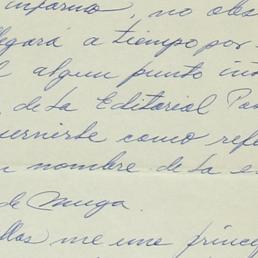 informó, no obs
llegará a tiempo por
algun punto int
de la Editorial Pa
servirte como refe
nombre de la e
de Muga.
ellos me une princip